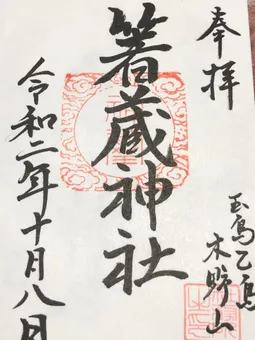 奉拝
箸蔵神社
玉島乙島
木野山
令和二年十月八日